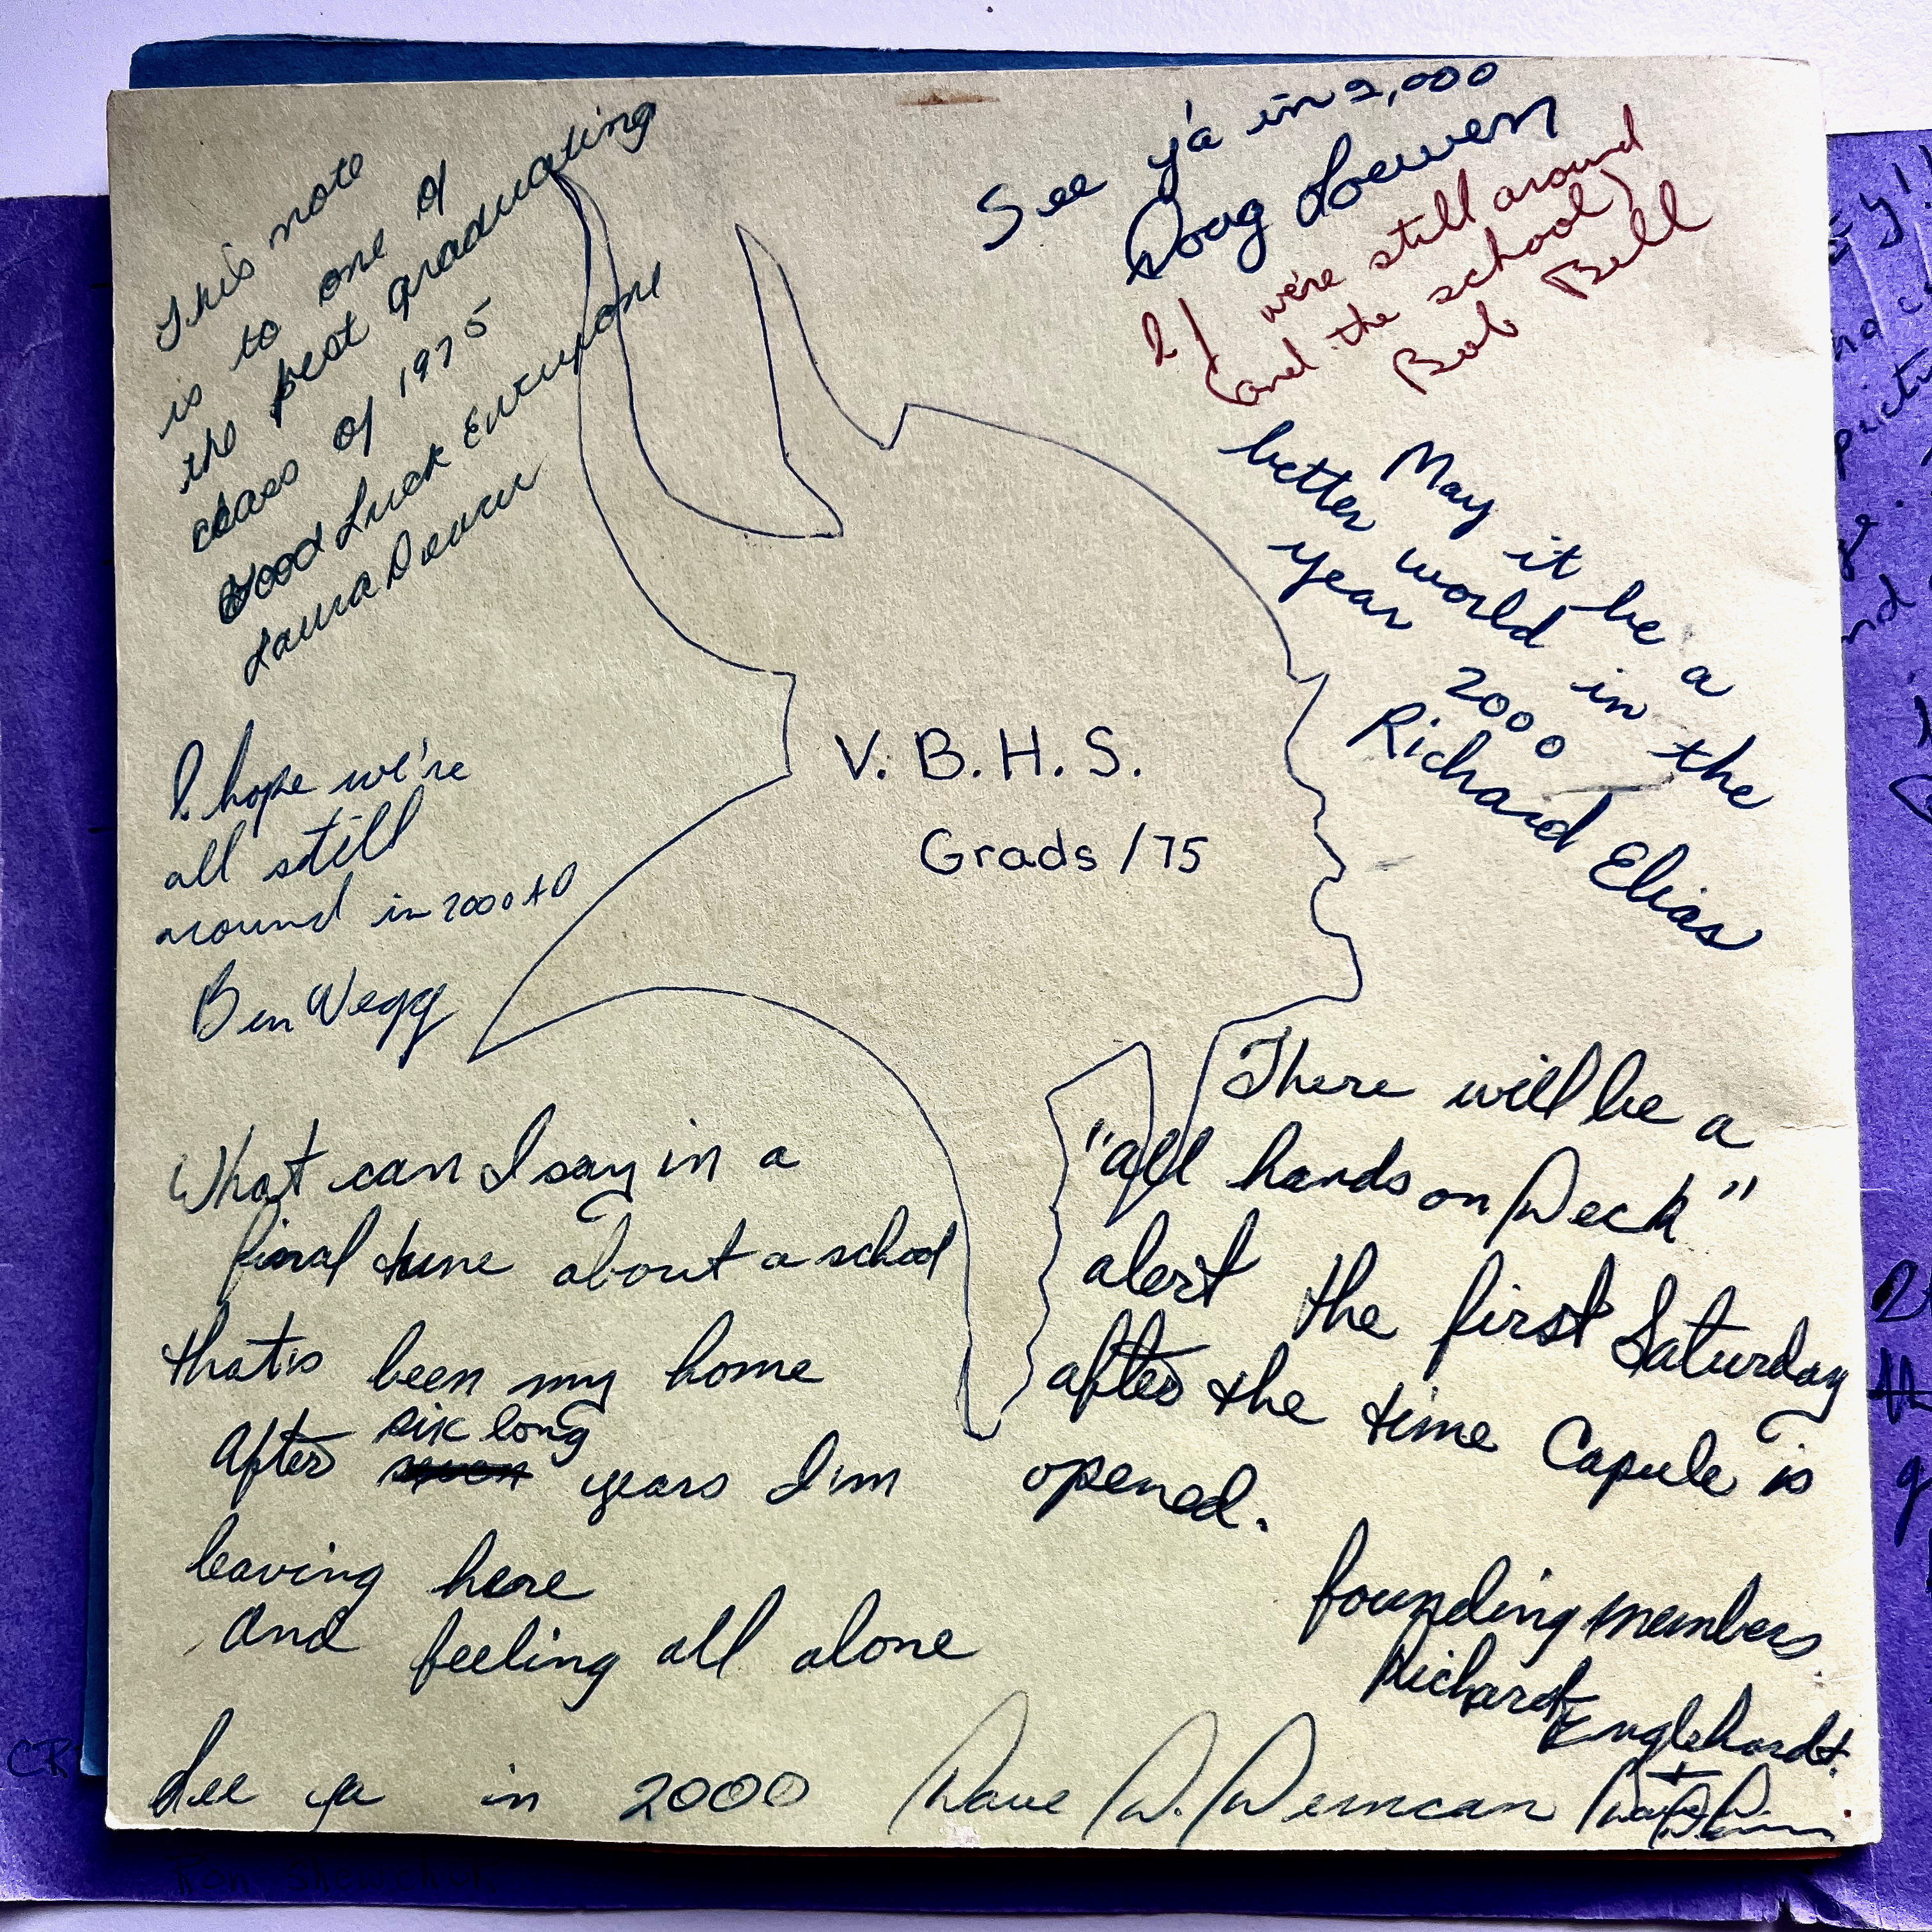 This note
is to one of
the best graduating
class of 1975
Good Luck Everyone
Laura
See y'a in 2,000
Doug Loewen
If we're still around
(and the school)
Bob Bell
May it be a
better world in the
year 2000
Richard Elias
V. B. H. S.
Grads /75
I hope we're
all still
around in 2000 AD
Ben Wegg
What can I say in a
final tune about a school
that's been my home
After six long years I'm
leaving here
And feeling all alone
See ya in 2000 Dave W.
There will be a
"all hands on Deck"
alert the first Saturday
after the time Capule is
opened.
founding members
Richard
Englehardt
+
CR
Ron Shewchuk